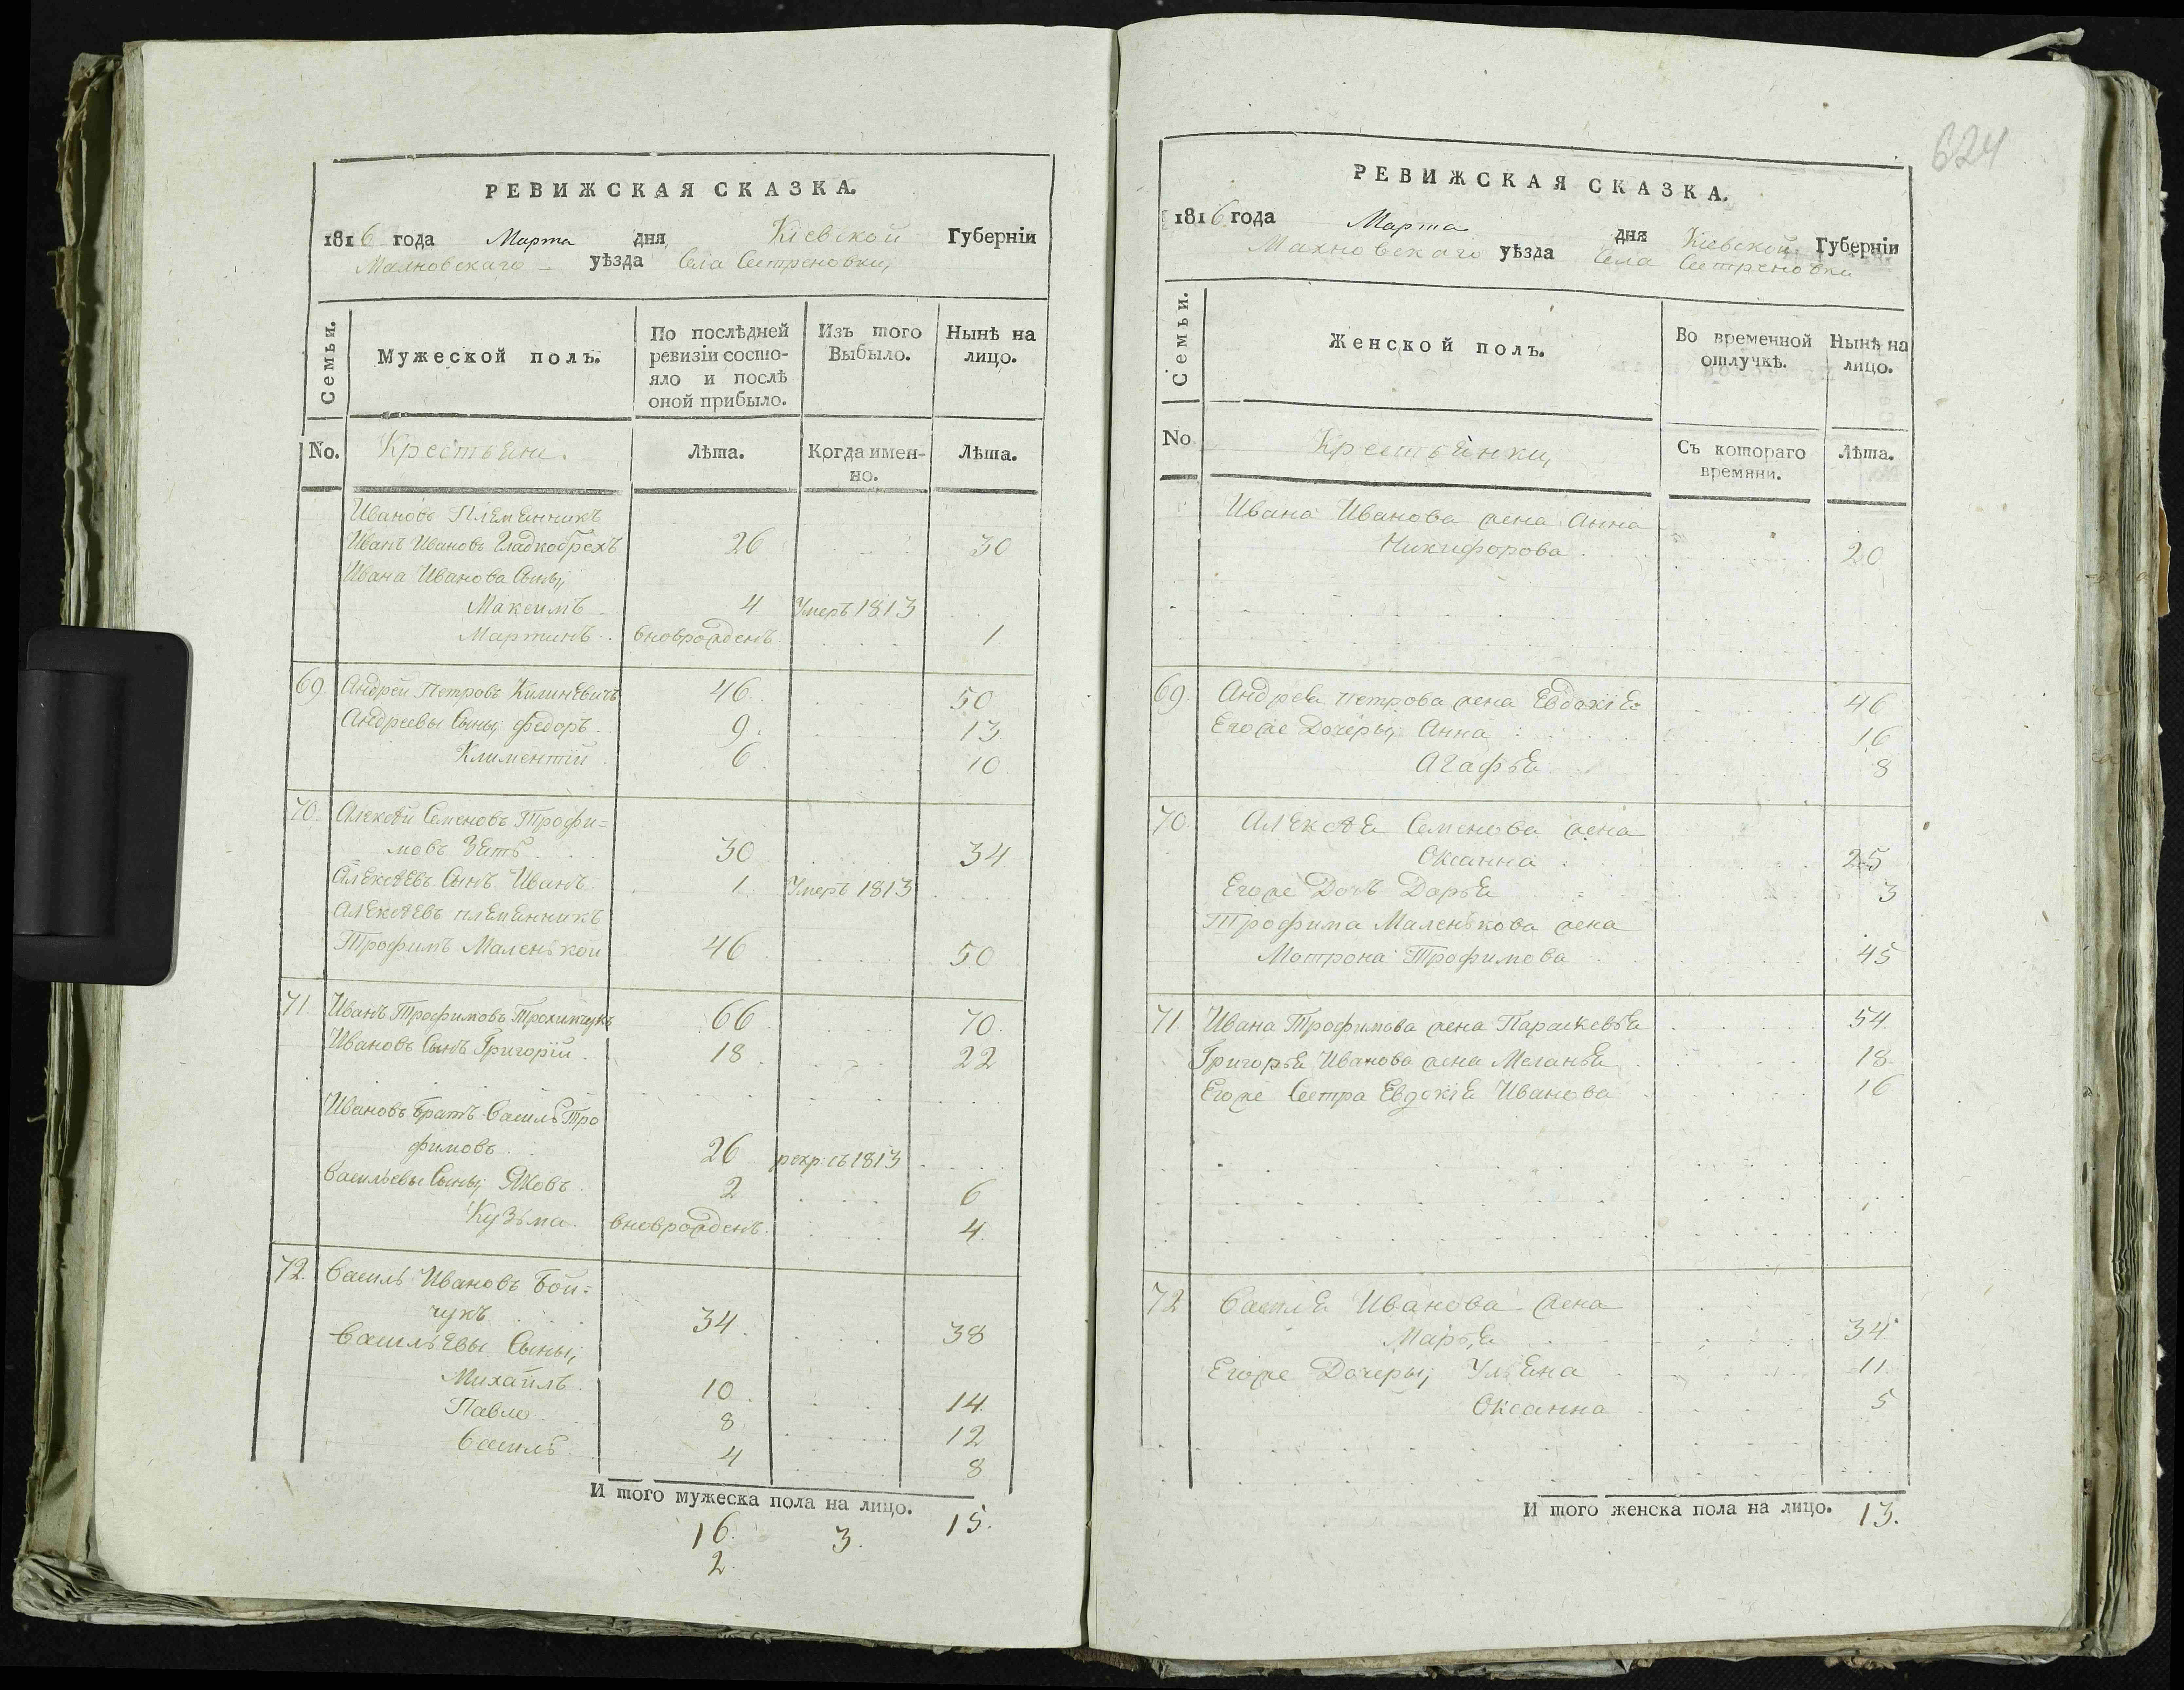 РЕВИЖСКАЯ СКАЗКА.
1816 года Марта дня Кіевской Губерніи
Махновскаго уѣзда Села Сестреновки,
Семьи. Мужеской полъ. По послѣдней ревизіи состояло и послѣ оной прибыло. Изъ того Выбыло. Нынѣ на лицо.
No. Крестьяне. Лѣта. Когда именно. Лѣта.
Ивановъ Племянникъ
Иванъ Ивановъ Гладкобрехъ 26 30
Ивана Иванова Сыны,
Максимъ 4 Умеръ 1813
Мартинъ вноврожденъ 1
69 Андрей Петровъ Килиневичъ 46 50
Андреевы Сыны, федоръ 9. 13
Климентій 6 10
70. Алексѣй Семеновъ Трофи=
мовъ Зять 30 34
Алексѣевъ Сынъ Иванъ 1 Умеръ 1813
Алексѣевъ племянникъ
Трофимъ Маленькой 46 50
71. Иванъ Трофимовъ Трохимчукъ 66 70
Ивановъ Сынъ Григорій 18 22
Ивановъ Братъ Василь Тро
фимовъ 26 рекр: съ 1813
Васильевы Сыны, Яковъ 2 6
Кузьма вноврожденъ 4
72. Василь Ивановъ Бой=
чукъ 34 38
Васильевы Сыны,
Михайлъ 10 14
Павло 8 12
Василь 4 8
И того мужеска пола на лицо.
16. 3. 15.
2.
624
РЕВИЖСКАЯ СКАЗКА.
1816 года Марта дня Кіевской Губерніи
Махновскаго уѣзда Села Сестреновки
Семьи. Женской полъ. Во временной отлучкѣ. Нынѣ на лицо.
No Крестьянки, Съ котораго времяни. Лѣта.
Ивана Иванова жена Анна
Никифорова 20
69. Андрея петрова жена Евдокія 46
Егоже Дочеры, Анна 16
Агафья 8
70 Алексѣя Семенова жена
Оксанна 25
Егоже Дочь Дарья 3
Трофима Маленькова жена
Мотрона Трофимова 45
71. Ивана Трофимова жена Параскевья 54
Григорья Иванова жена Меланья 18
Егоже Сестра Евдокія Иванова 16
72 Василя Иванова жена
Марья 34
Егоже Дочеры, Ульяна 11
Оксанна 5
И того женска пола на лицо. 13.